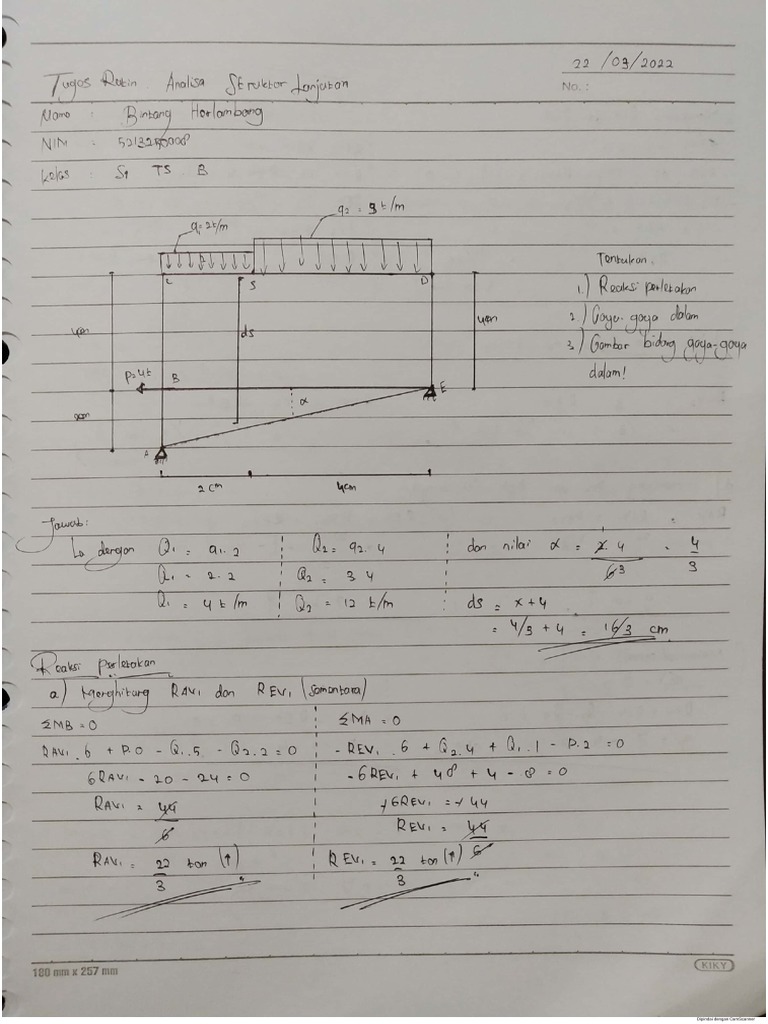 22 / 03 / 2022
No. :
Tugas Rutin Analisa Struktur Lanjutan
Nama : Bintang Herlambang
NIM :
Kelas : S1 TS B
q2 = 3 t/m
q1 = 2t/m
C S D
Tentukan.
1.) Reaksi perletakan
2.) Gaya-gaya dalam
3.) Gambar bidang gaya-gaya
dalam!
4cm ds 4cm
P=4t B E
2cm α
A
2 cm 4cm
Jawab:
↳ dengan Q1 = q1.2 Q2 = q2.4 dan nilai x = 2.4/6 3 = 4/3
Q1 = 2.2 Q2 = 3 4
Q1 = 4 t/m Q2 = 12 t/m ds = x+4
= 4/3 + 4 = 16/3 cm
Reaksi Perletakan
a) Menghitung RAV1 dan REV1 (sementara)
ΣMB = 0 ΣMA = 0
RAV1 .6 + P.0 - Q1.5 - Q2.2 = 0 - REV1 .6 + Q2.4 + Q1.1 - P.2 = 0
6RAV1 - 20 - 24 = 0 - 6REV1 + 48 + 4 - 8 = 0
RAV1 = 44/6 +6REV1 = +44
REV1 = 44/6
RAV1 = 22/3 ton (↑) REV1 = 22/3 ton (↑)
180 mm x 257 mm
KIKY
Dipindai dengan CamScanner